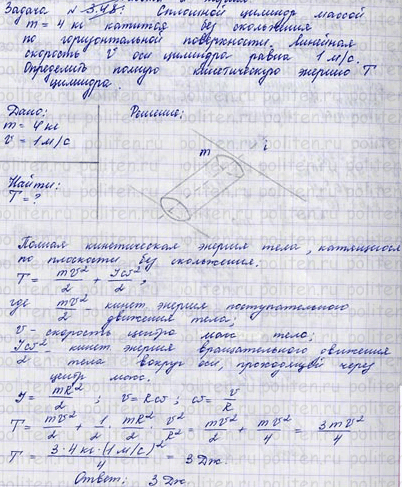 Задача № 3.48: Сплошной цилиндр массой
m = 4 кг катится без скольжения
по горизонтальной поверхности. Линейная
скорость v оси цилиндра равна 1 м/с.
Определить полную кинетическую энергию T
цилиндра.
Дано:
m = 4 кг
v = 1 м/с
Найти:
T = ?
Решение:
m
Полная кинетическая энергия тела, катящегося
по плоскости без скольжения.
T = mv²/2 + Jω²/2,
где mv²/2 - кинет. энергия поступательного
движения тела;
v - скорость центра масс тела;
Jω²/2 - кинет. энергия вращательного движения
тела вокруг оси, проходящей через
центр масс.
J = mR²/2 ; v = Rω ; ω = v/R
T = mv²/2 + 1/2 · mR²/2 · v²/R² = mv²/2 + mv²/4 = 3mv²/4
T = 3·4 кг·(1 м/с)²/4 = 3 Дж.
Ответ: 3 Дж.
politen.ru